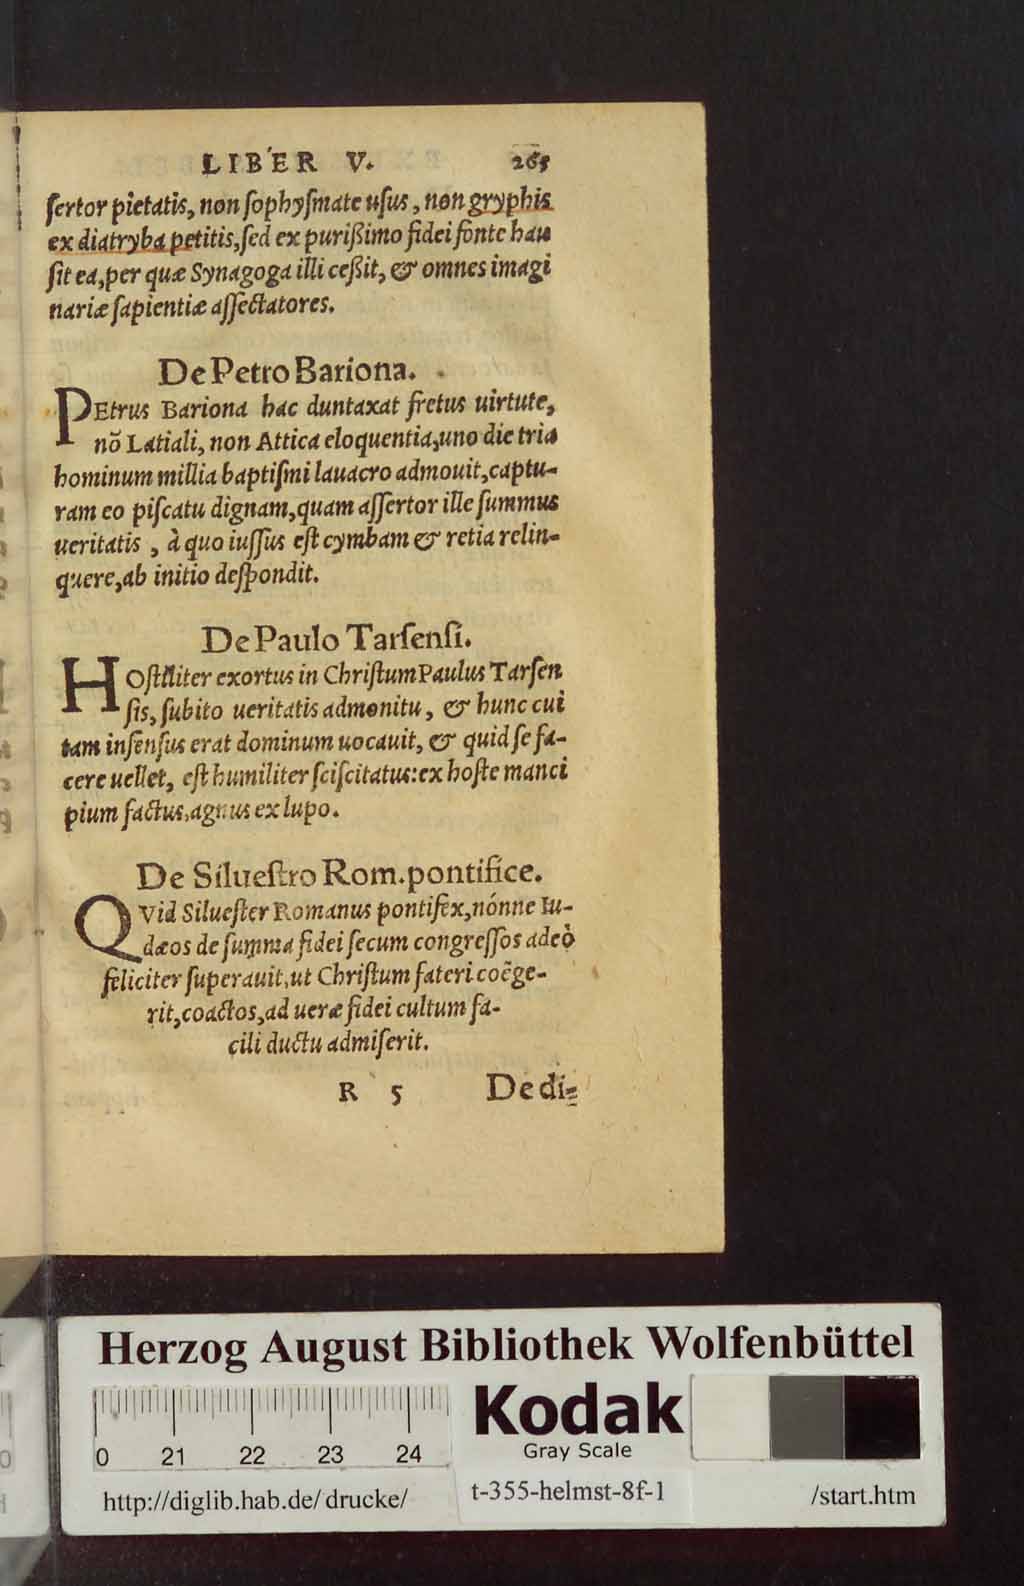 LIBER V. 265
ſertor pietatis, non ſophyſmate uſus, non gryphis
ex diatryba petitis, ſed ex purißimo fidei fonte hau
ſit ea, per quæ Synagoga illi ceßit, & omnes imagi
nariæ ſapientiæ aſſectatores.
De Petro Bariona.
PEtrus Bariona hac duntaxat fretus uirtute,
nõ Latiali, non Attica eloquentia, uno die tria
hominum millia baptiſmi lauacro admouit, captu-
ram eo piſcatu dignam, quam aſſertor ille ſummus
ueritatis, à quo iuſſus eſt cymbam & retia relin-
quere, ab initio deſpondit.
De Paulo Tarſenſi.
HOſtiliter exortus in Chriſtum Paulus Tarſen
ſis, ſubito ueritatis admonitu, & hunc cui
tam infenſus erat dominum uocauit, & quid ſe fa-
cere uellet, eſt humiliter ſciſcitatus: ex hoſte manci
pium factus, agnus ex lupo.
De Silueſtro Rom. pontifice.
QVid Silueſter Romanus pontifex, nónne Iu-
dæos de ſumma fidei ſecum congreſſos adeò
feliciter ſuperauit, ut Chriſtum fateri coëge-
rit, coactos, ad ueræ fidei cultum fa-
cili ductu admiſerit.
R 5 De di-
Herzog August Bibliothek Wolfenbüttel
0 21 22 23 24
Kodak
Gray Scale
http://diglib.hab.de/drucke/ t-355-helmst-8f-1 /start.htm